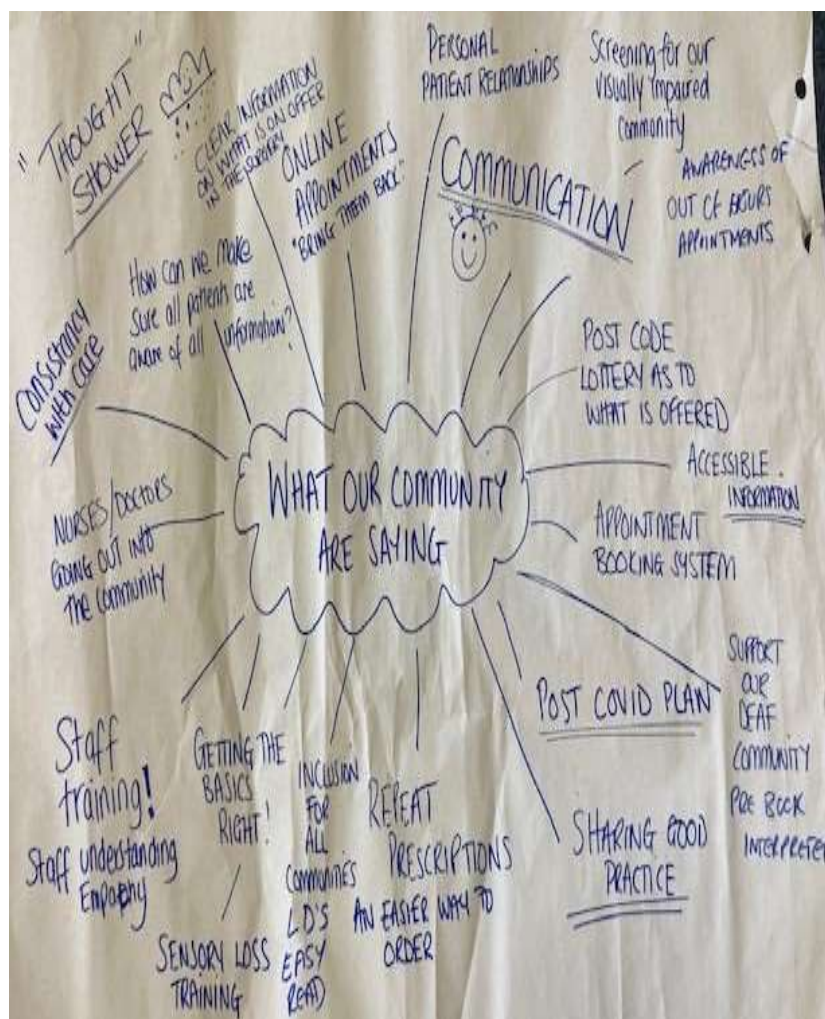 "THOUGHT"
SHOWER
CLEAR INFORMATION
ON WHAT IS ON OFFER
IN THE SURGERY
ONLINE
APPOINTMENTS
"BRING THEM BACK"
PERSONAL
PATIENT RELATIONSHIPS
COMMUNICATION
Screening for our
visually impaired
Community
AWARENESS OF
OUT OF HOURS
APPOINTMENTS
How can we make
sure all patients are
aware of all information?
Consistancy
with care
POST CODE
LOTTERY AS TO
WHAT IS OFFERED
ACCESSIBLE
INFORMATION
WHAT OUR COMMUNITY
ARE SAYING
NURSES/DOCTORS
GOING OUT INTO
The Community
APPOINTMENT
BOOKING SYSTEM
SUPPORT
OUR
DEAF
COMMUNITY
PRE BOOK
INTERPRETE
POST COVID PLAN
SHARING GOOD
PRACTICE
Staff
training!
Staff understanding
Empathy
GETTING THE
BASICS
RIGHT!
SENSORY LOSS
TRAINING
INCLUSION
FOR
ALL
Communities
L.D'S
EASY
READ
REPEAT
PRESCRIPTIONS
AN EASIER WAY TO
ORDER